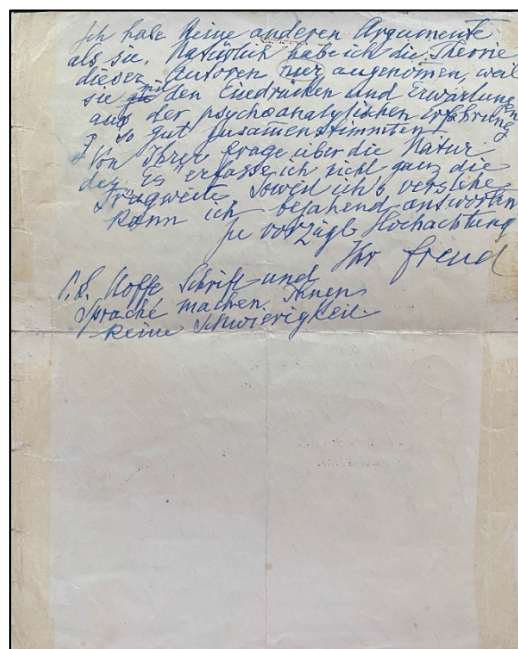 Ich habe keine anderen Argumente
als sie. Natürlich habe ich die Theorie
dieser Autoren nur angenommen, weil
sie mit den Eindrücken und Erwartungen
aus der psychoanalytischen Erfahrung
so gut zusammenstimmten.
Von Ihrer Frage über die Natur
des "Es" erfasse ich nicht ganz die
Tragweite, soweit ich's verstehe
kann ich bejahend antworten
In vorzügl Hochachtung
Ihr Freud
P.S. Hoffe Schrift und
Sprache machen Ihnen
keine Schwierigkeit